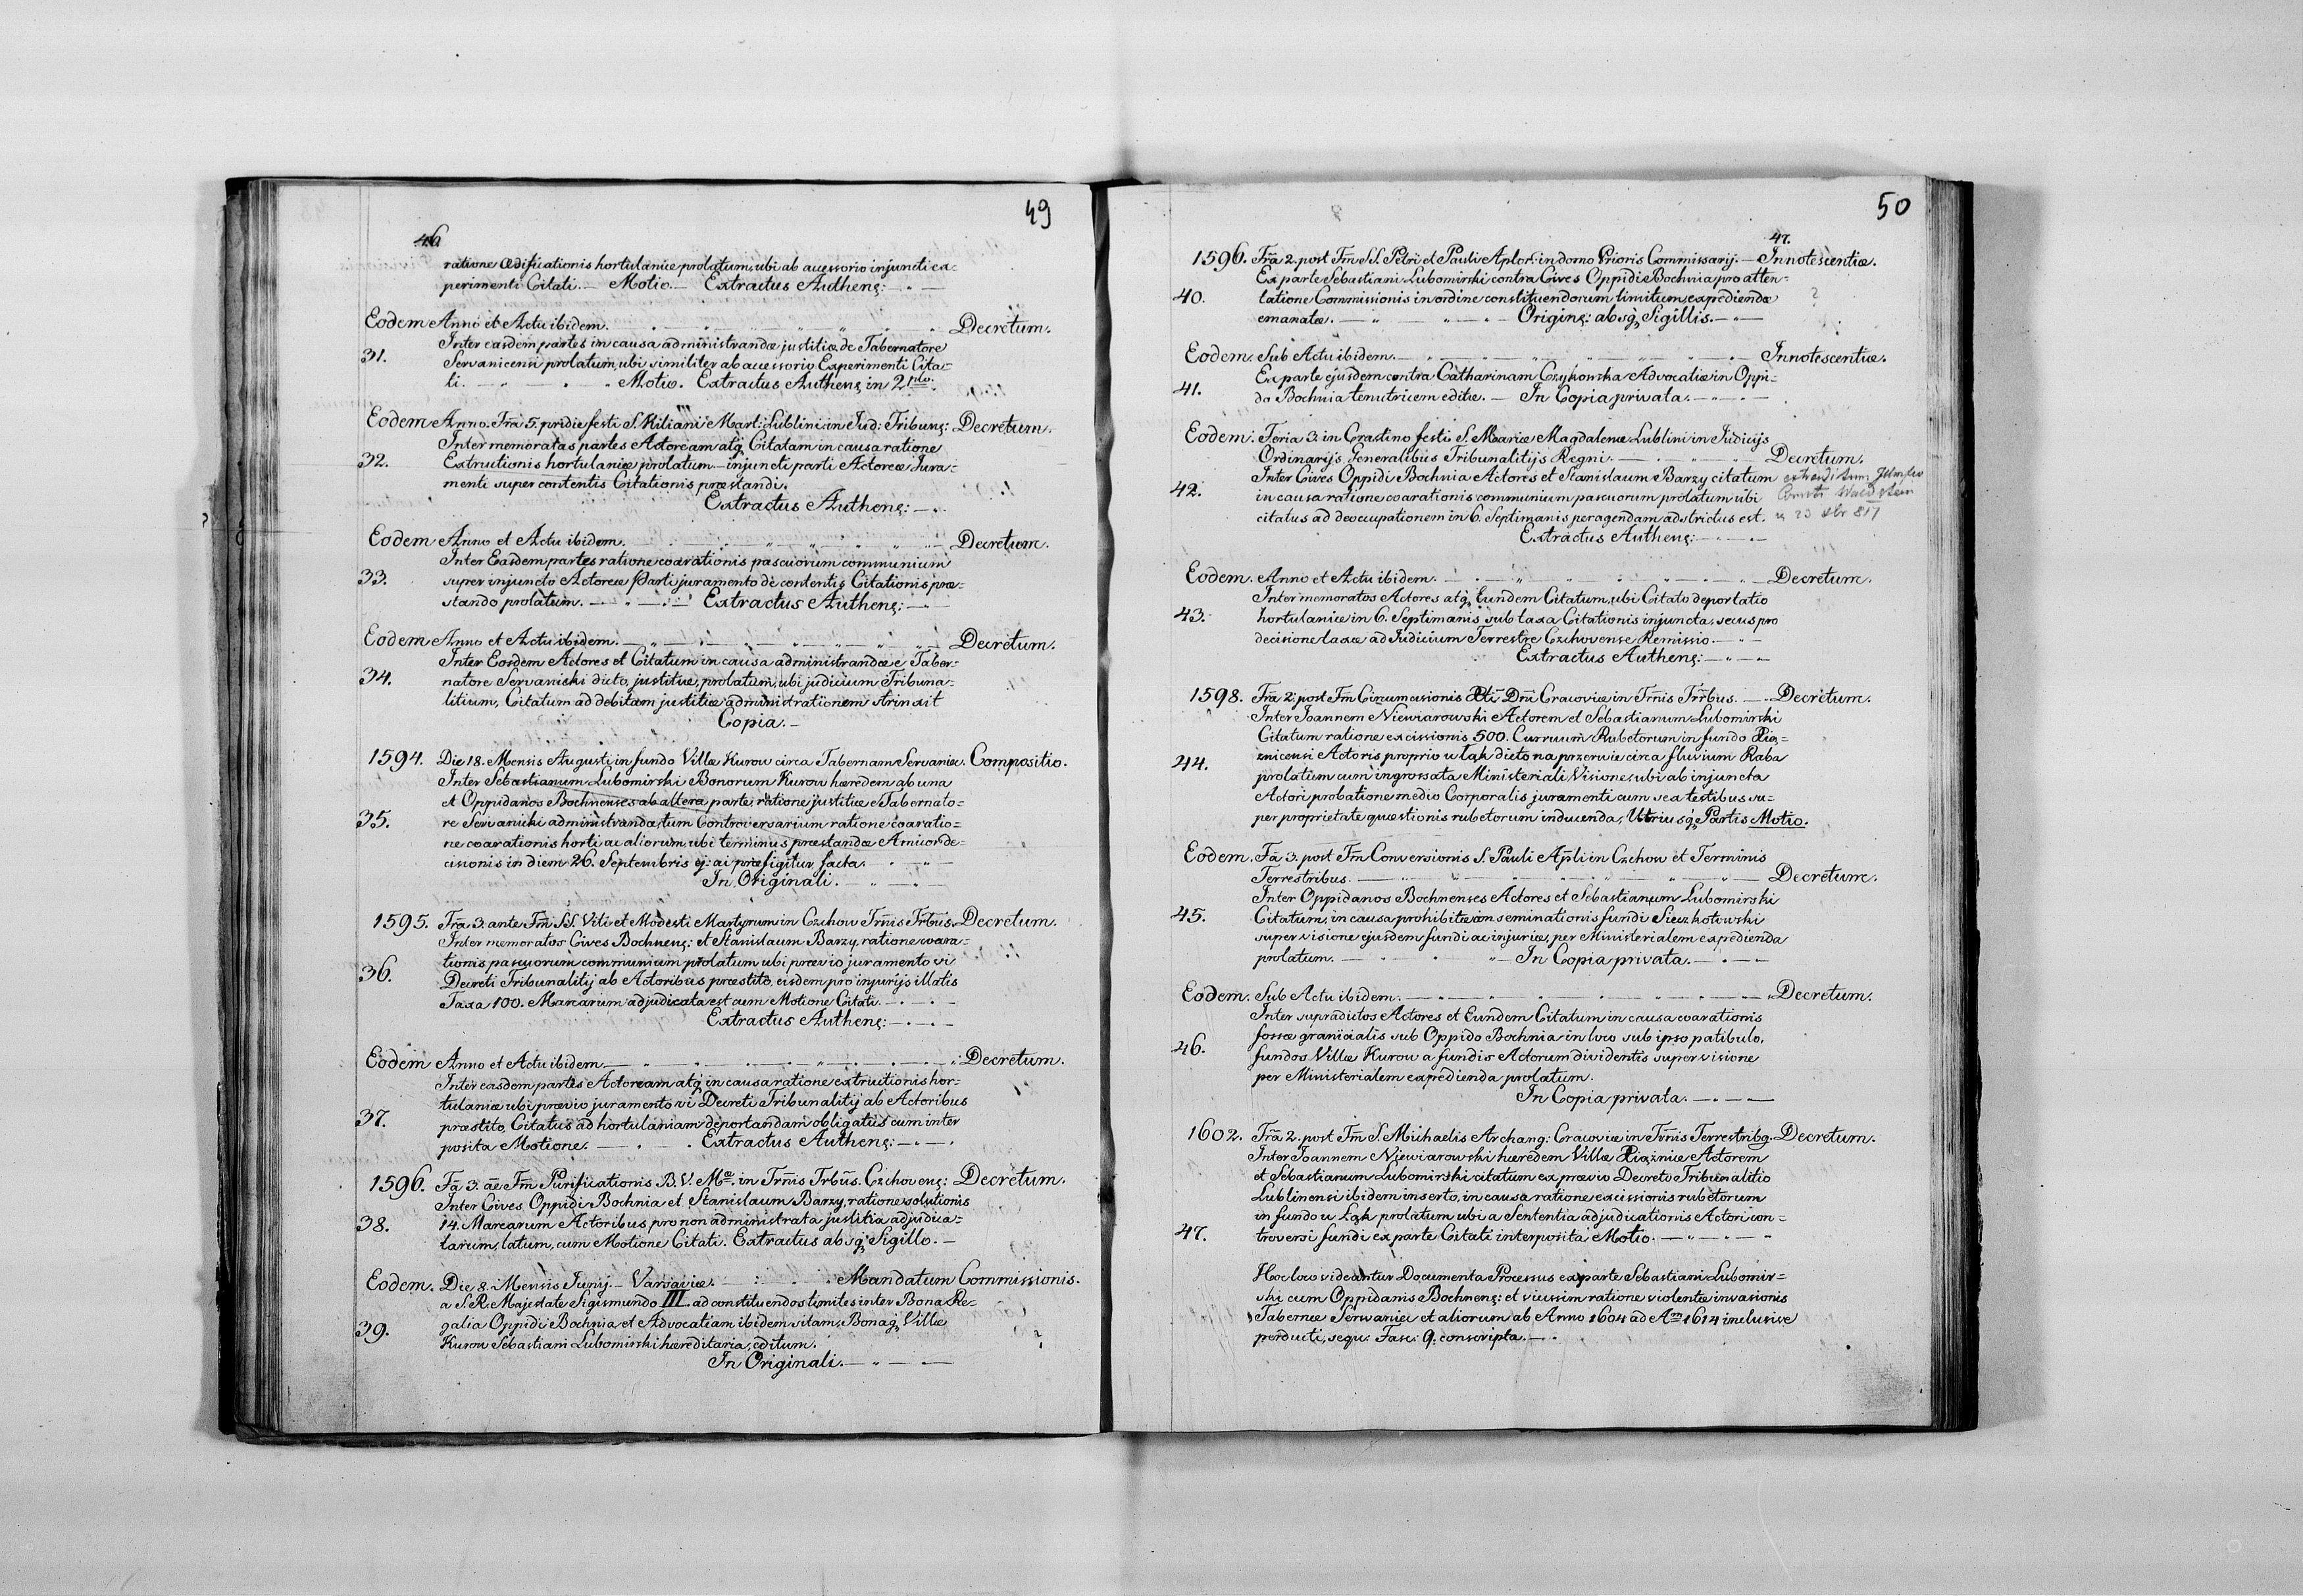 49
46
ratione ædificationis hortulaniæ prolatum, ubi ab accessorio injuncti ex-
perimenti Citati. — Motio. — Extractus Authenc: — " —
Eodem Anno et Actu ibidem. Decretum.
Inter easdem partes in causa administrandæ justitiæ de Tabernatore
31. Servanicensi prolatum, ubi similiter ab accessorio Experimenti Cita-
ti. — " — " Motio. Extractus Authenc in 2plo.
Eodem Anno. Fr̃a 5. pridie festi S. Kiliani Mart: Lublini in Jud: Tribunc: Decretum.
Inter memoratas partes Actoream atq Citatam in causa ratione
32. Extructionis hortulaniæ prolatum — injuncti parti Actoreæ Jura-
menti super contentis Citationis præstandi.
Extractus Authenc: — "
Eodem Anno et Actu ibidem. Decretum.
Inter Easdem partes ratione coarationis pascuorum communium
33. super injuncto Actoreæ Parti juramento de contentis Citationis præ-
stando prolatum. — " — " — Extractus Authenc: — " —
Eodem Anno et Actu ibidem. Decretum.
Inter Eosdem Actores et Citatum in causa administrandæ e Taber-
34. natore Servanicki dicto, justitiæ, prolatum, ubi judicium Tribuna-
litium, Citatum ad debitam justitiæ administrationem strinxit
Copia. —
1594. Die 18. Mensis Augusti in fundo Villæ Kurow circa Tabernam Servaniec. Compositio.
Inter Sebastianum Lubomirski Bonorum Kurow hæredem ab una
et Oppidanos Bochnenses ab altera parte, ratione justitiæ e Tabernato-
35. re Servanicki administranda, tum Controversarium ratione coaratio-
ne coarationis horti ac aliorum, ubi terminus præstandæ Amicor de-
cisionis in diem 26. Septembris ej: ai præfigitur, facta. " — " —
In Originali. — " — " —
1595. Fr̃a 3. ante Fm̃ SS. Viti et Modesti Martyrum in Czchow Tr̃nis Tr̃bus. Decretum.
Inter memoratos Cives Bochnenc: et Stanislaum Barzy, ratione coara-
36. tionis pascuorum communium prolatum ubi prævio juramento vi
Decreti Tribunalitij ab Actoribus præstito, eisdem pro injurijs illatis
Taxa 100. Marcarum adjudicata est cum Motione Citati. — " — " —
Extractus Authenc: — " — " —
Eodem Anno et Actu ibidem Decretum.
Inter easdem partes Actoream atq in causa ratione extructionis hor-
tulaniæ ubi prævio juramento vi Decreti Tribunalitij ab Actoribus
37. præstito, Citatus ad hortulaniam deportandam obligatus cum inter
posita Motione. — " — " Extractus Authenc: — " — "
1596. Fã 3. ãe Fm̃ Purificationis B. V. Mæ. in Tr̃nis Trbũs. Czchovenc: Decretum.
Inter Cives Oppidi Bochnia et Stanislaum Barzy, ratione solutionis
38. 14. Marcarum Actoribus pro non administrata justitia adjudica-
tarum, latum, cum Motione Citati. Extractus absq Sigillo. —
Eodem. Die 8. Mensis Junij. — Varsaviæ. — : — " Mandatum Commissionis.
a S. R. Majestate Sigismundo III. ad constituendos limites inter Bona Re-
39. galia Oppidi Bochnia et Advocatiam ibidem sitam, Bonaq Villæ
Kurow Sebastiani Lubomirski hæreditaria, editum. ?
In Originali. — " — " —
50
47.
1596. Fr̃a 2. post Fm̃ SS. Petri et Pauli Aplor: in domo Prioris Commissarij. — Innotescentiæ.
Ex parte Sebastiani Lubomirski contra Cives Oppidi Bochnia pro atten-
40. tatione Commissionis in ordine constituendorum limitum, expediendæ ?
emanatæ. — " — " — Originc: absq Sigillis. — " —
Eodem. Sub Actu ibidem. Innotescentiæ.
Ex parte ejusdem contra Catharinam Czykowska Advocatiæ in Oppi-
41. do Bochnia tenutricem editæ. — In Copia privata. — " — " —
Eodem. Feria 3. in Crastino festi S. Mariæ Magdalenæ Lublini in Judicijs
Ordinarijs Generalibus Tribunalitijs Regni. Decretum.
Inter Cives Oppidi Bochnia Actores et Stanislaum Barzy citatum extraditum
42. in causa ratione coarationis communium pascuorum prolatum ubi Comiti Waldstein
citatus ad deoccupationem in 6. Septimanis peragendam adstrictus est. 23 817
Extractus Authenc: — " — " —
Eodem. Anno et Actu ibidem. Decretum.
Inter memoratos Actores atq Eundem Citatum, ubi Citato deportatio
43. hortulaniæ in 6. Septimanis sub taxa Citationis injuncta, secus pro
decisione taxæ ad Judicium Terrestre Czchovense Remissio. — " —
Extractus Authenc: — " — " —
1598. Fr̃a 2. post Fm̃ Circumcisionis Xti Dñi Cracoviæ in Tr̃nis Tr̃rbus. — Decretum.
Inter Joannem Niewiarowski Actorem et Sebastianum Lubomirski
Citatum ratione excissionis 500. Curruum Rubetorum in fundo Xią-
44. znicensi Actoris proprio u Łąk dicto na przerwie circa fluvium Raba
prolatum cum ingrossata Ministeriali Visione, ubi ab injuncta
Actori probatione medio Corporalis juramenti cum sex testibus su-
per proprietate quæstionis rubetorum inducenda, Utriusq Partis Motio.
Eodem. Fã 3. post Fm̃ Conversionis S. Pauli Apl̃i in Czchow et Terminis
Terrestribus. Decretum.
Inter Oppidanos Bochnenses Actores et Sebastianum Lubomirski
45. Citatum, in causa prohibitæ inseminationis fundi Sieczkotowski
super visione ejusdem fundi ac injuriæ, per Ministerialem expedienda
prolatum. — " — " — In Copia privata. — " — " —
Eodem. Sub Actu ibidem. Decretum.
Inter supradictos Actores et Eundem Citatum in causa coarationis
46. fossæ granicialis sub Oppido Bochnia in loco sub ipso patibulo,
fundos Villæ Kurow a fundis Actorum dividentis super visione
per Ministerialem expedienda prolatum.
In Copia privata. — " — " —
1602. Fr̃a 2. post Fm̃ S. Michaelis Archang: Cracoviæ in Tr̃nis Terrestribq. Decretum.
Inter Joannem Niewiarowski hæredem Villæ Xiąźnice Actorem
et Sebastianum Lubomirski citatum ex prævio Decreto Tribunalitio
Lublinensi ibidem inserto, in causa ratione excissionis rubetorum
in fundo u Łąk prolatum ubi a Sententia adjudicationis Actori con-
47. troversi fundi ex parte Citati interposita Motio. — " — " — "
Hoc loco videantur Documenta Processus ex parte Sebastiani Lubomir-
ski cum Oppidanis Bochnenc: et vicissim ratione violentæ invasionis
Tabernæ Serwaniec et aliorum ab Anno 1604 ad Am 1614 inclusive
perducti, sequ: Fasc: 9. conscripta. — "